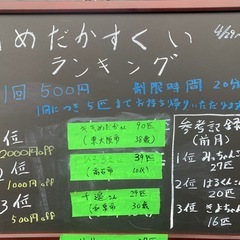 めだかすくい
4/29〜
ランキング
1回 500円
制限時間 20分
1回につき5匹までお持ち帰りいただけます
1位
2000円off
2位
1000円off
3位
500円off
90匹
(東大阪市 38歳)
39匹
(高石市 10代)
29匹
30歳)
参考記録
(前月)
1位
27匹
2位
3位
16匹